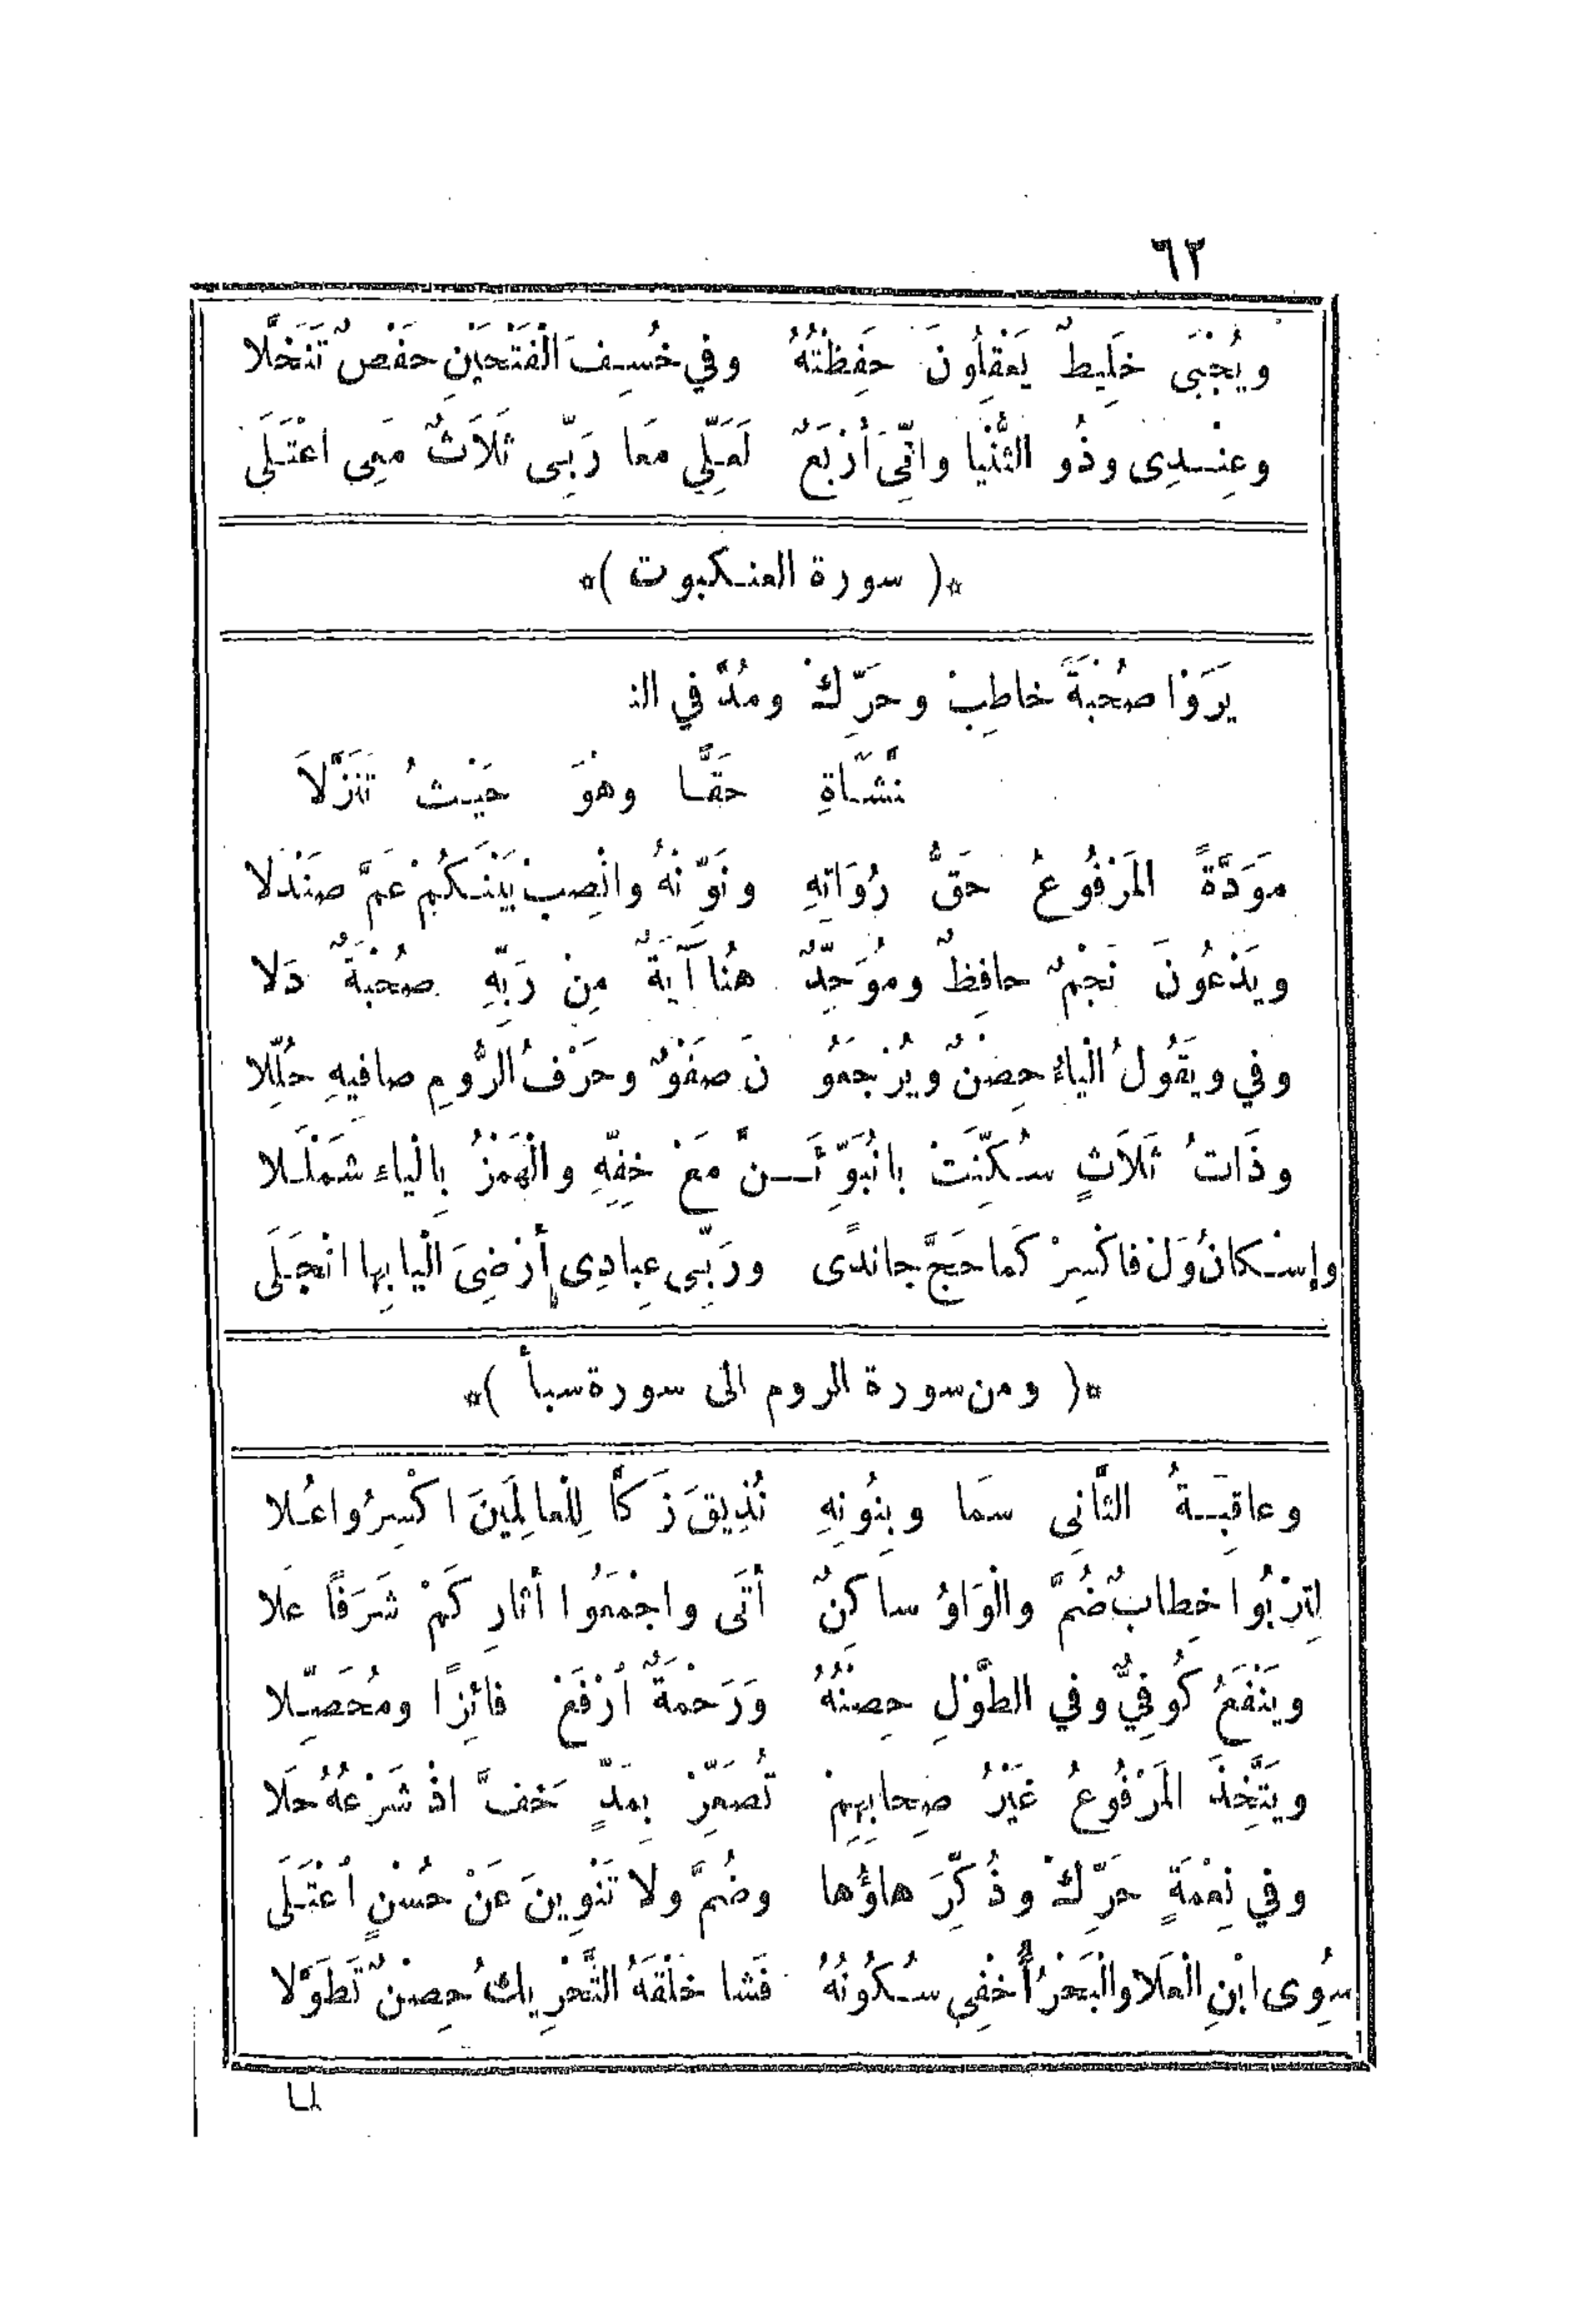 ٦٢
ويُجْبَى خَلِيطٌ يَعْقِلُونَ حَفِظْتُهُ وفي خُسِفَ الْفَتْحَيْنِ حَفْصٌ تَنَخَّلا
وعِنْدِى وذُو الثُّنْيا وإنِّىَ أَرْبَعٌ لَعَلِّي مَعا رَبِّى ثَلاَثٌ مَعِى اعْتَلَى
*( سورة العنكبوت )*
يَرَوْا صُحْبَةً خاطِبْ وحَرِّكْ ومُدَّ في النـ
نَّشَاةِ حَقًّا وهْوَ حَيْثُ تَنَزَّلاَ
مَوَدَّةً المَرْفُوعُ حَقُّ رُوَاتِهِ ونَوِّنْهُ وانْصِبْ بَيْنَكُمْ عَمَّ صَنْدَلا
ويَدْعُونَ نَجْمٌ حافِظٌ ومُوَحِّدٌ هُنا آيَةٌ مِنْ رَبِّهِ صُحْبَةٌ دَلا
وفي ويَقُولُ الْياءُ حِصْنٌ ويُرْجَعُو نَ صَفْوٌ وحَرْفُ الرُّومِ صافِيهِ حُلِّلا
وذَاتُ ثَلاَثٍ سُكِّنَتْ بانُبَوِّئَنَّ مَعْ خِفِّهِ والْهَمْزُ بِالْياءِ شَمْلَلا
وإسْكانُ وَلْ فاكْسِرْ كَما حَجَّ جاندًى ورَبِّى عِبادِى أَرْضِىَ الْيا بِها انْجَلَى
*( ومن سورة الروم الى سورة سبأ )*
وعاقِبَةُ الثَّانِى سَما وبِنُونِهِ نُذِيقَ زَكَّا لِلْعالَمِينَ اكْسِرُوا عُلا
لِتَرْبُوا خِطابٌ ضُمَّ والْوَاوُ ساكِنٌ أَتَى واجْمَعُوا أثارِ كَمْ شَرَفًا عَلا
ويَنْفَعُ كُوفِيٌّ وفي الطَّوْلِ حِصْنُهُ وَرَحْمَةٌ اُرْفَعْ فائِزًا ومُحَصِّلا
ويَتَّخِذَ المَرْفُوعُ غَيْرُ صِحابِهِمْ تُصَعِّرْ بِمَدٍّ خَفَّ اذْ شَرْعُهُ حَلا
وفي نِعْمَةٍ حَرِّكْ وذُكِّرَ هاؤُها وضُمَّ ولا تَنْوِينَ عَنْ حُسْنٍ اُعْتَلَى
سِوى ابْنِ الْعَلا والْبَحْرُ أُخْفِى سُكُونُهُ فَشا خَلْقَهُ التَّحْرِيكُ حِصْنٌ تَطَوَّلا
لما